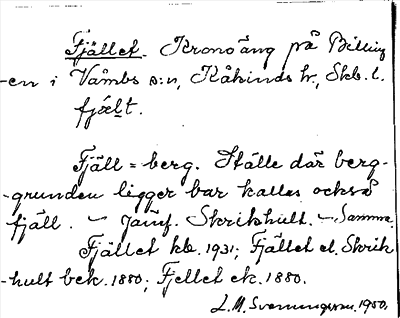 Fjället. Kronoäng på Billing
-en i Våmbs s:n, Kåkinds hr., Skb. l.
fjælt.
Fjäll = berg. Ställe där berg-
-grunden ligger bar kallas också
fjäll. — Jämf. Skrikhult. — Samma.
Fjället kb. 1931; Fjället el. Skrik
-hult bek. 1880; Fjellet ek. 1880.
L. M. Svenungsson. 1950.